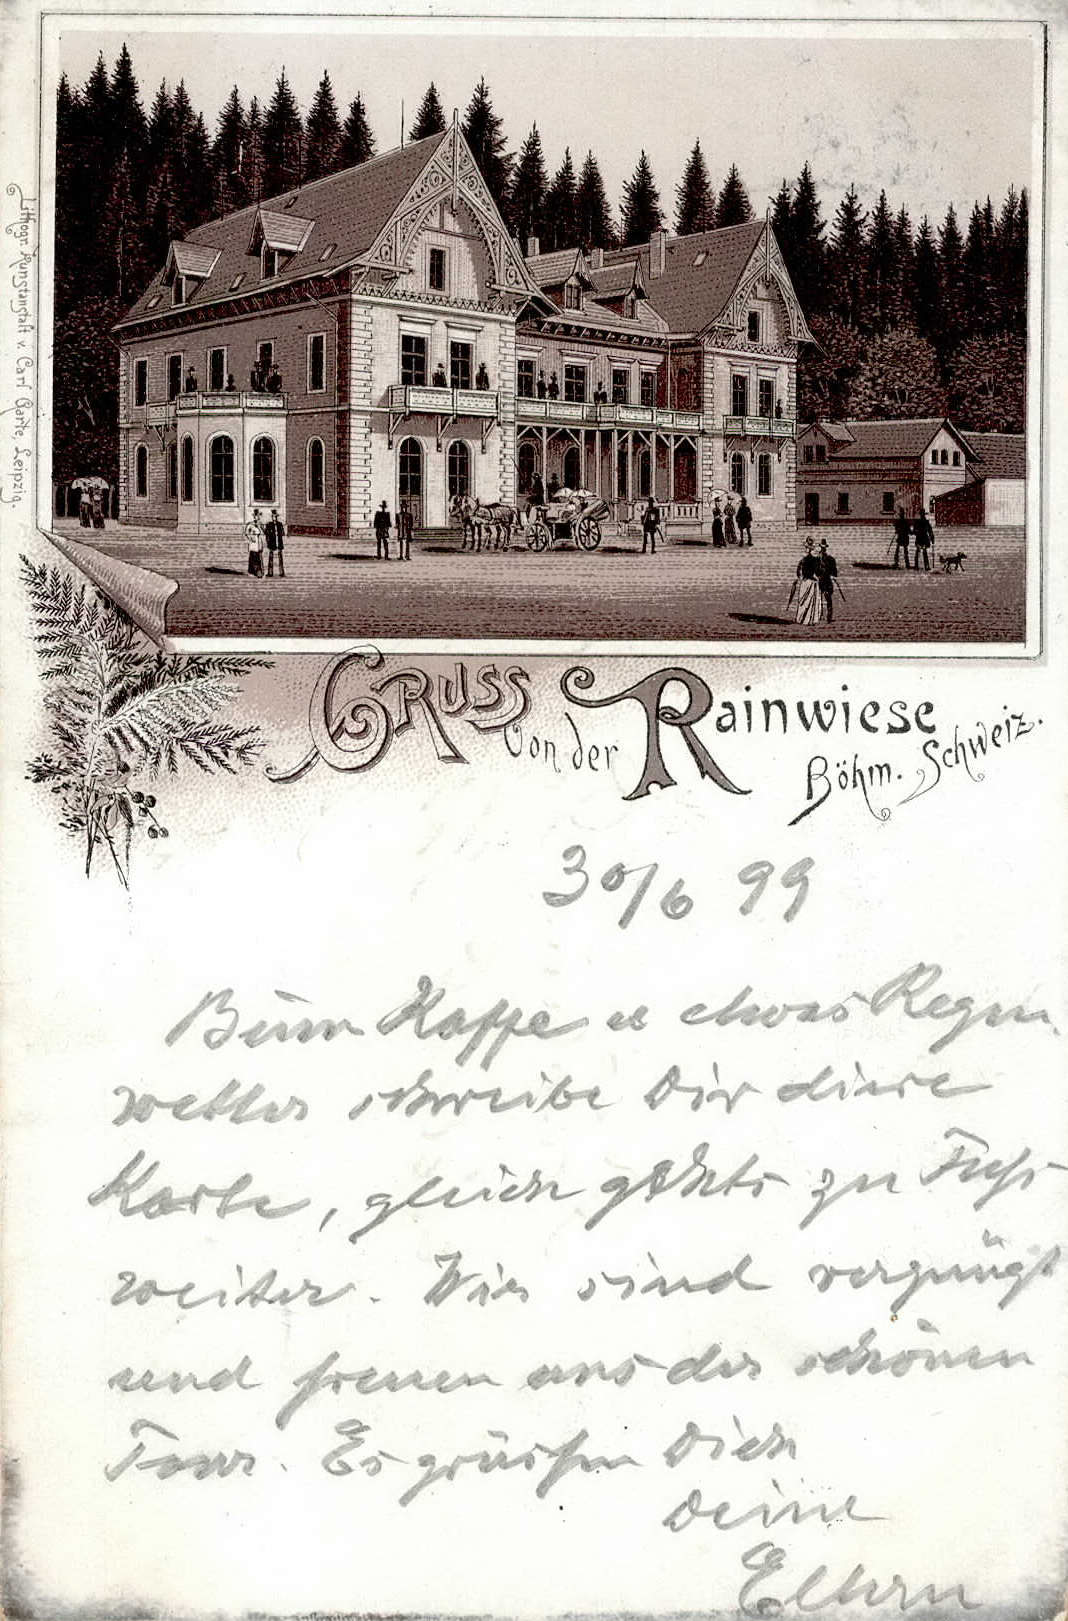 Lithogr. Kunstanstalt v. Carl Garte, Leipzig.
Gruss von der Rainwiese
Böhm. Schweiz.
30/6 99
Beim Kaffe u etwas Regen
wetter schreibe Dir diese
Karte, gleich gehts zu Fuss
weiter. Wir sind vergnügt
und freuen uns der schönen
Tour. Es grüssen Dich
Deine
Eltern